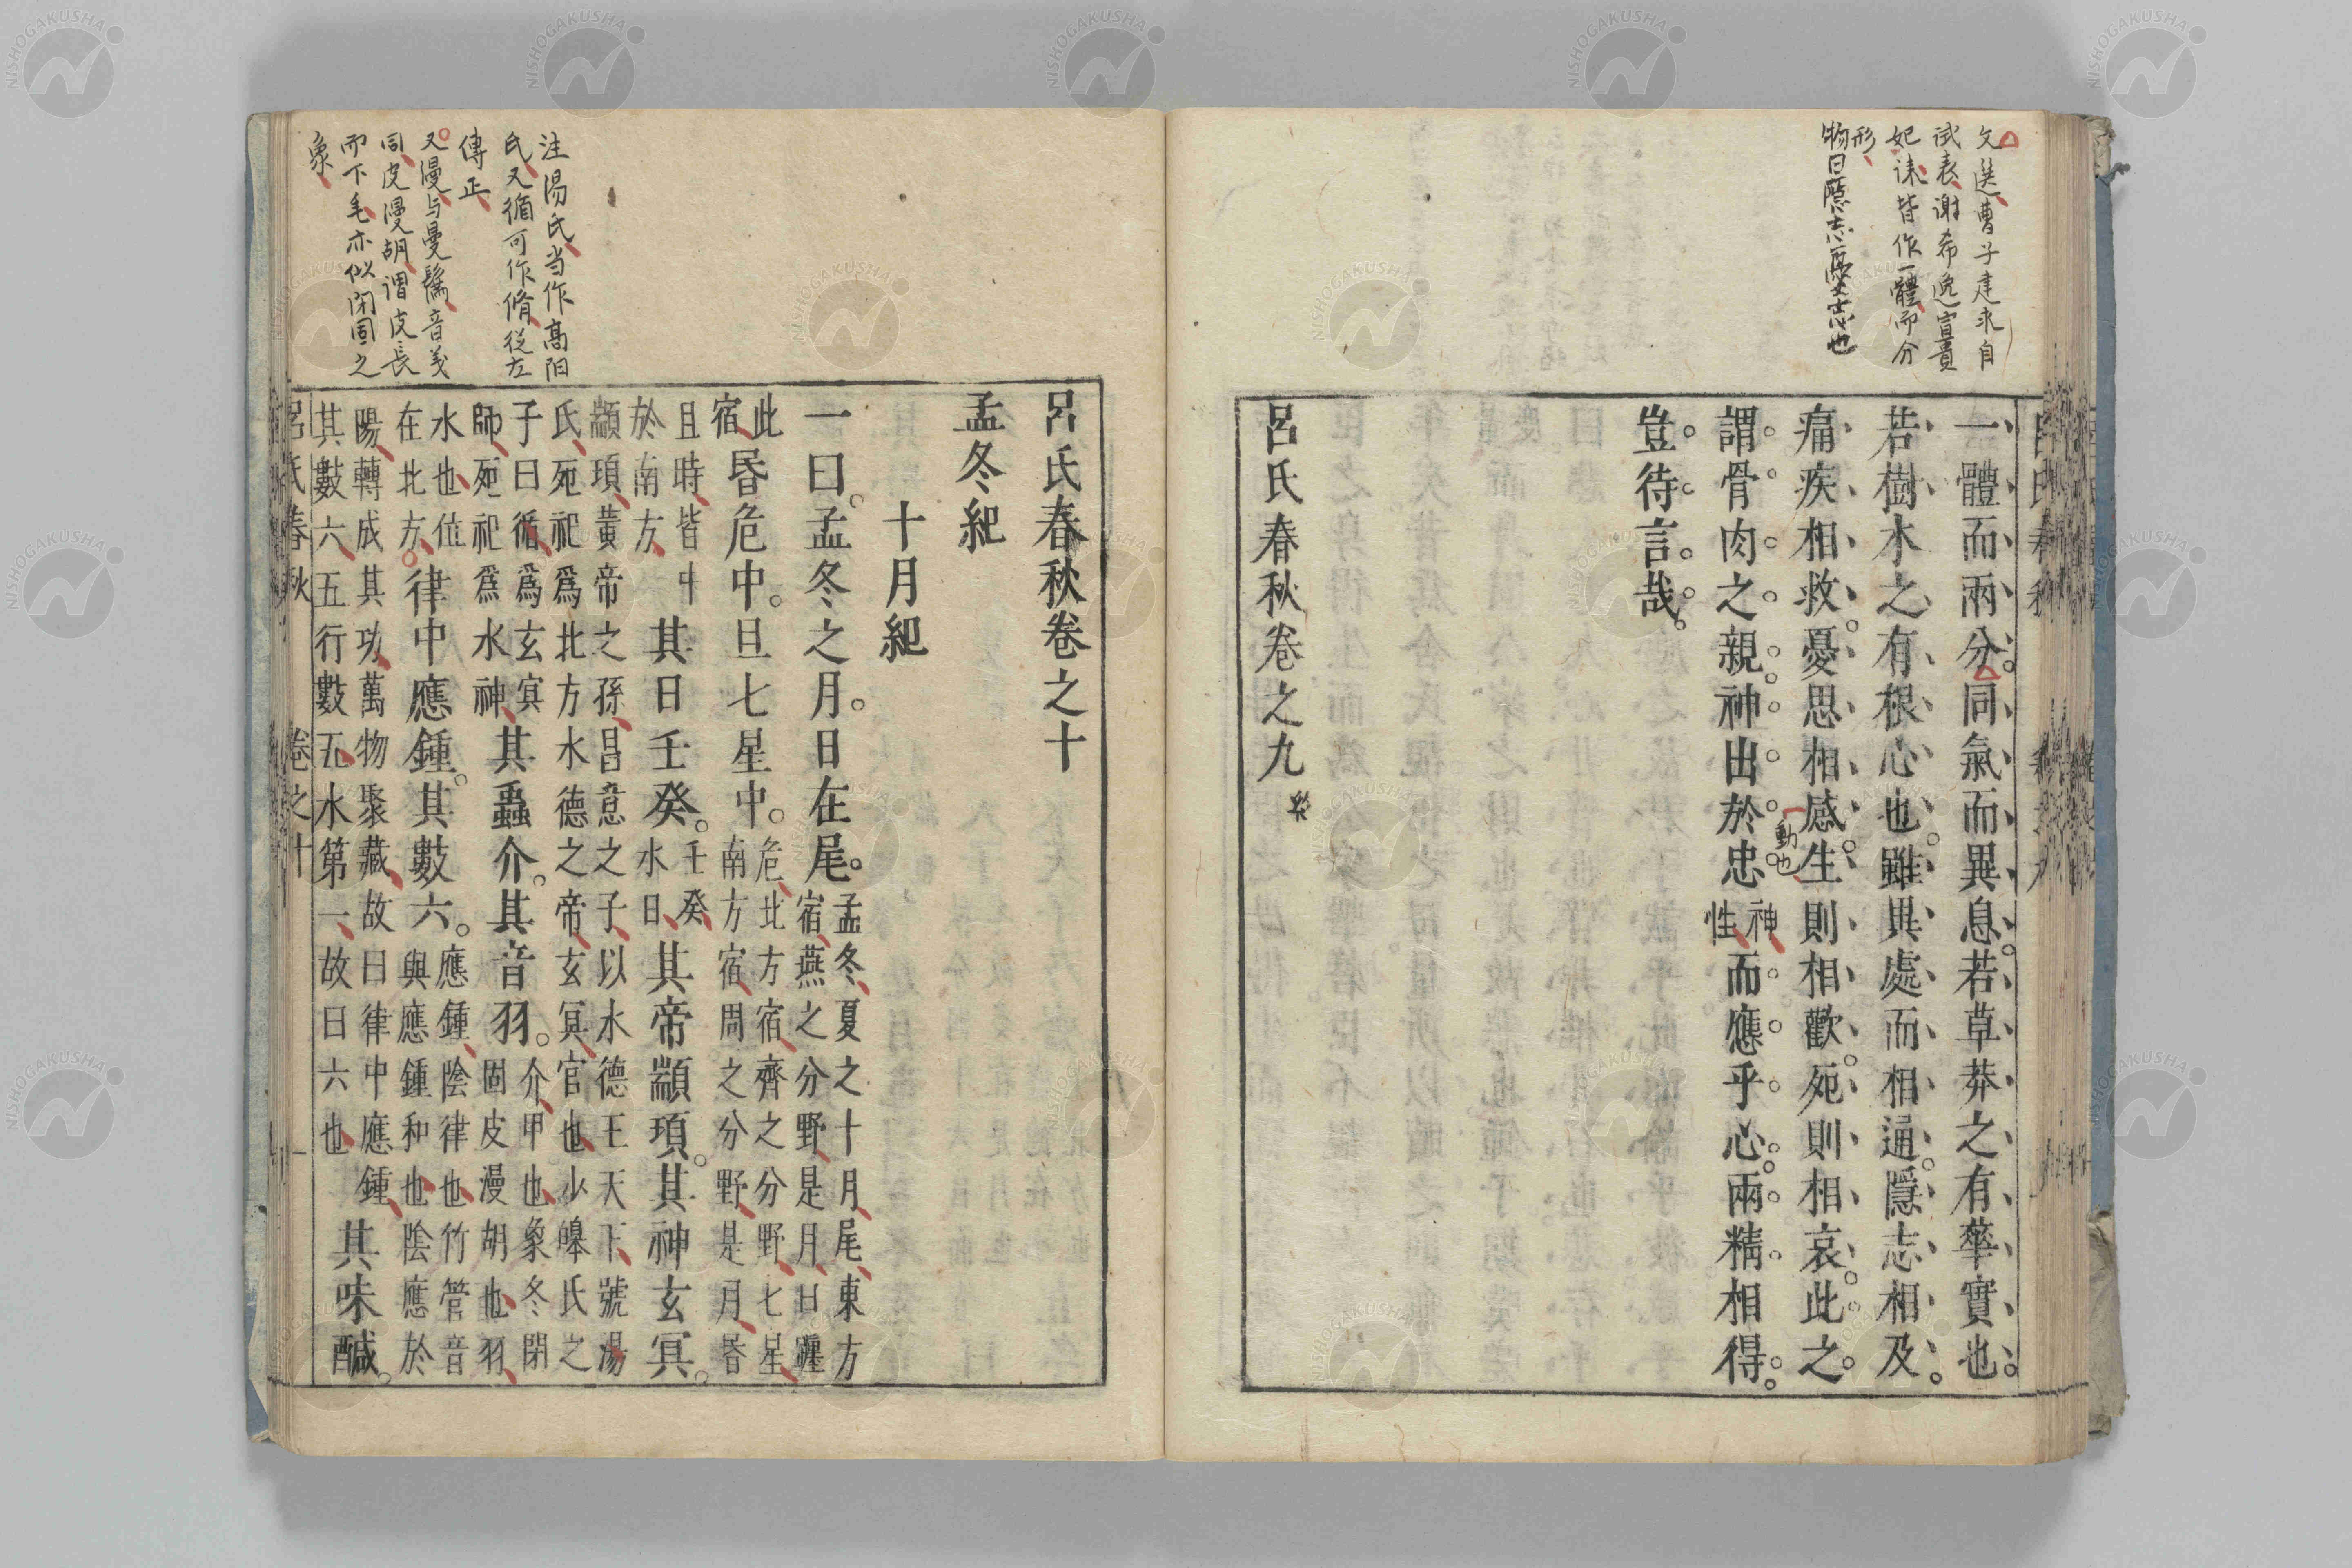 文選曹子建求自
試表謝希逸宣貴
妃誄皆作一體而分
形
物曰隱志憂思志也
一體而兩分同氣而異息若草莽之有華實也
若樹木之有根心也雖異處而相通隱志相及
痛疾相救憂思相感生則相歡死則相哀此之
動也
謂骨肉之親神出於忠
神
性
而應乎心兩精相得
豈待言哉
呂氏春秋卷之九 終
呂氏春秋卷之十
孟冬紀
十月紀
一曰孟冬之月日在尾
孟冬夏之十月尾東方
宿燕之分野是月日躔
此
宿
昏危中旦七星中
危北方宿齊之分野七星
南方宿周之分野是月昏
旦時皆中
於南方
其日壬癸
壬癸
水日
其帝顓頊其神玄冥
顓頊黃帝之孫昌意之子以水德王天下號湯
氏死祀爲北方水德之帝玄冥官也少皞氏之
子曰循爲玄冥
師死祀爲水神
其蟲介其音羽
介甲也象冬閉
固皮漫胡也羽
水也位
在北方
律中應鍾其數六
應鍾陰律也竹管音
與應鍾和也陰應於
陽轉成其功萬物聚藏故曰律中應鍾
其數六五行數五水第一故曰六也
其味鹹
呂氏春秋 卷之十 一
注湯氏当作高阳
氏又循可作脩從左
傳正
又漫与曼䰅音義
同皮漫胡謂皮長
而下毛亦似閉固之
象
NISHOGAKUSHA